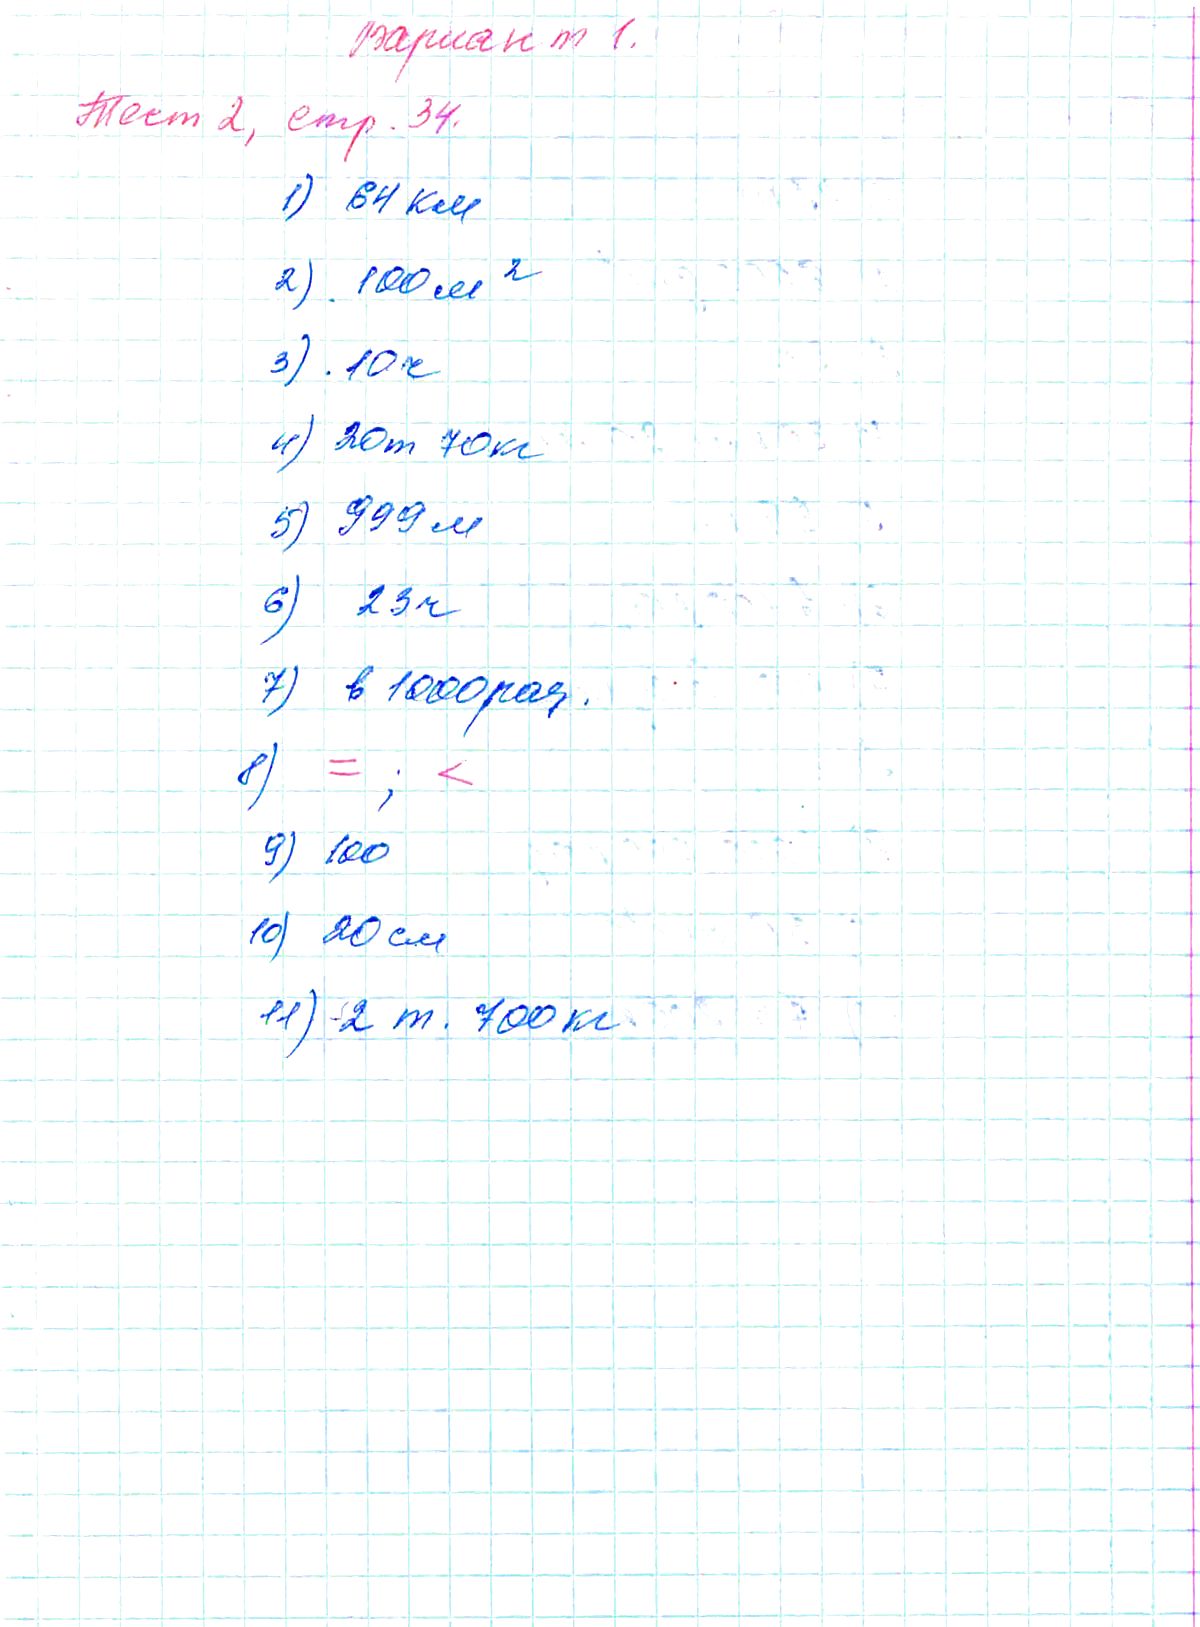 Вариант 1.
Тест 2, стр. 34.
1) 64 км
2) 100 м²
3) 10 ч
4) 20 т 70 кг
5) 999 м
6) 23 ч
7) в 1000 раз.
8) = ; <
9) 100
10) 20 см
11) 2 т. 700 кг